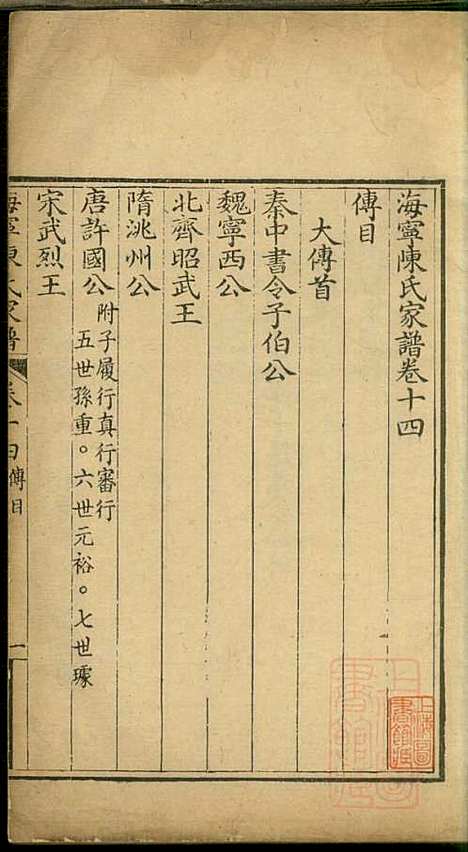 海寧陳氏家譜卷十四
傳目
大傳首
秦中書令子伯公
魏寧西公
北齊昭武王
隋洮州公
唐許國公附子履行真行審行
五世孫重。六世元裕。七世璩
宋武烈王
海寧陳氏家譜 卷十四 傳目 一
上海圖書館藏